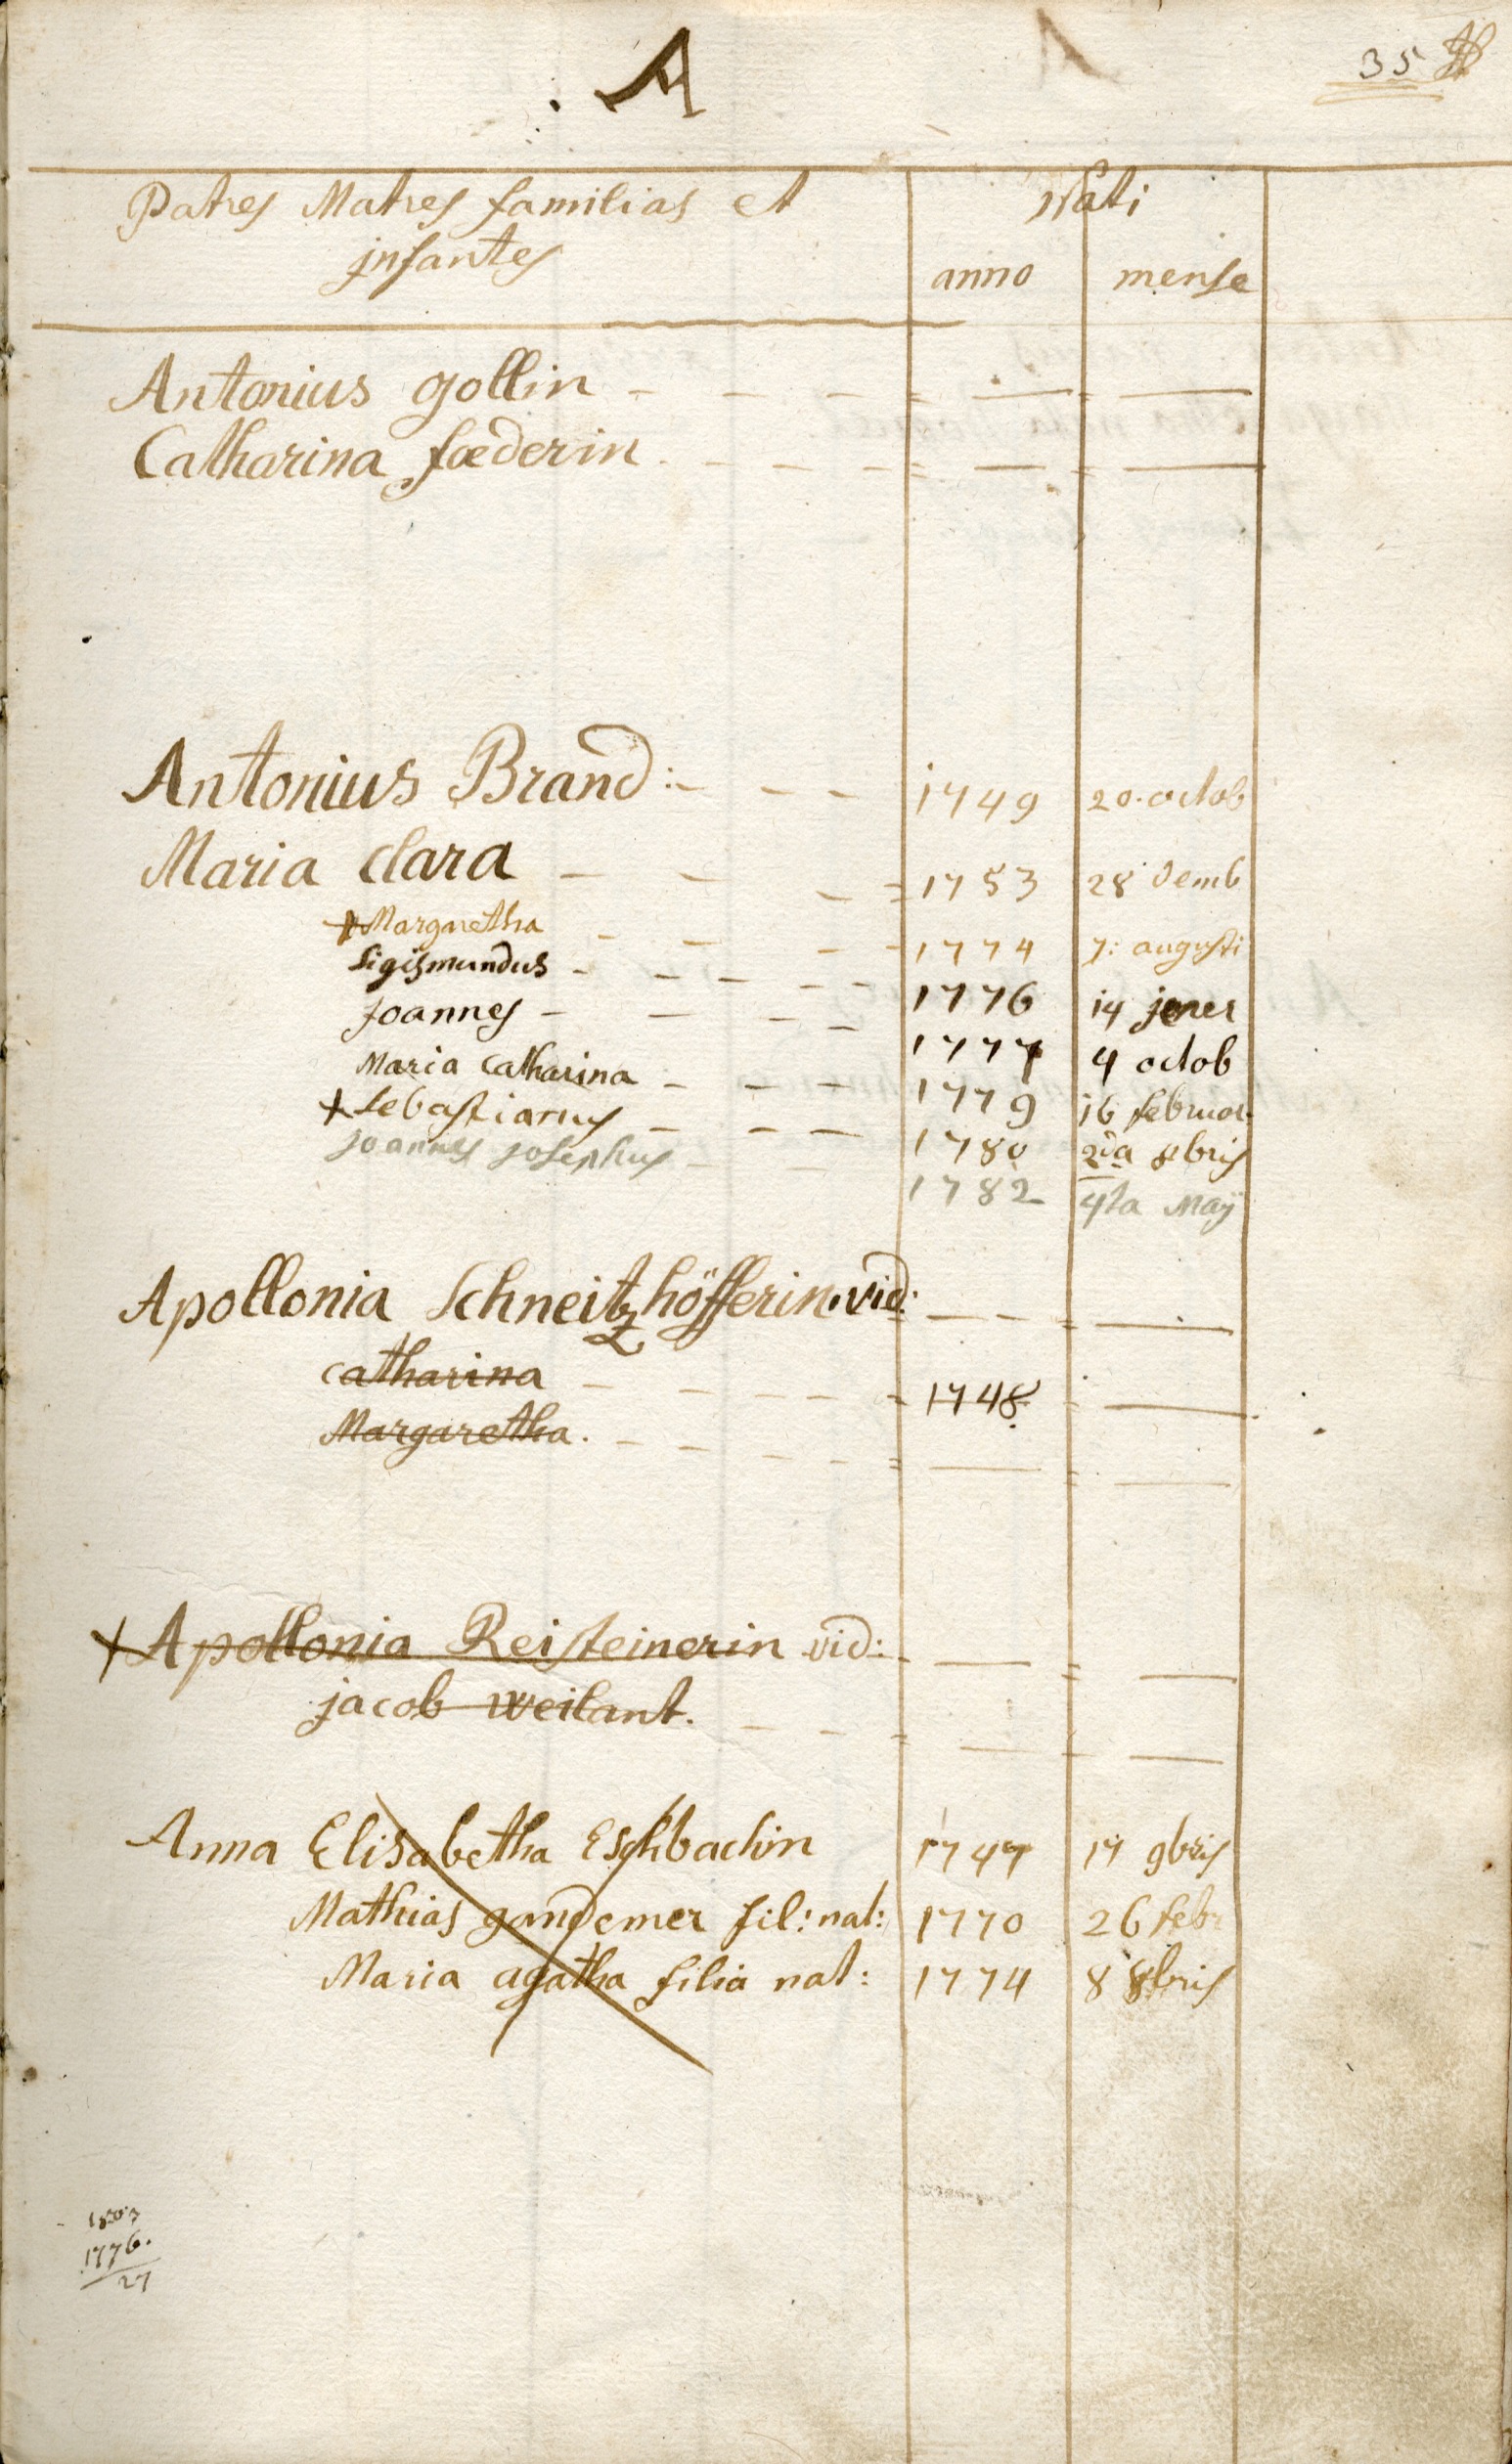 A
35
Patres Matres familias et
Nati
infantes
anno mense
Antonius gollin
Catharina foederin
Antonius Brand: 1749 20. octob
Maria Clara 1753 28 Xemb
+ Margaretha 1774 7: augusti
Sigismundus 1776 14 jener
Joannes 1777 4 octob
Maria Catharina 1779 16 februar.
+ Sebastianus 1780 2da 8bris
joannes josephus 1782 4ta Maÿ
Apollonia Schneitzhöfferin. vid:
catharina 1748
Margaretha.
+ Apollonia Reisteinerin vid:
jacob weilant.
Anna Elisabetha Eschbachin 1747 17 9bris
Mathias gandemer fil: nat: 1770 26 febr
Maria agatha filia nat: 1774 8 8bris
1803
1776.
27